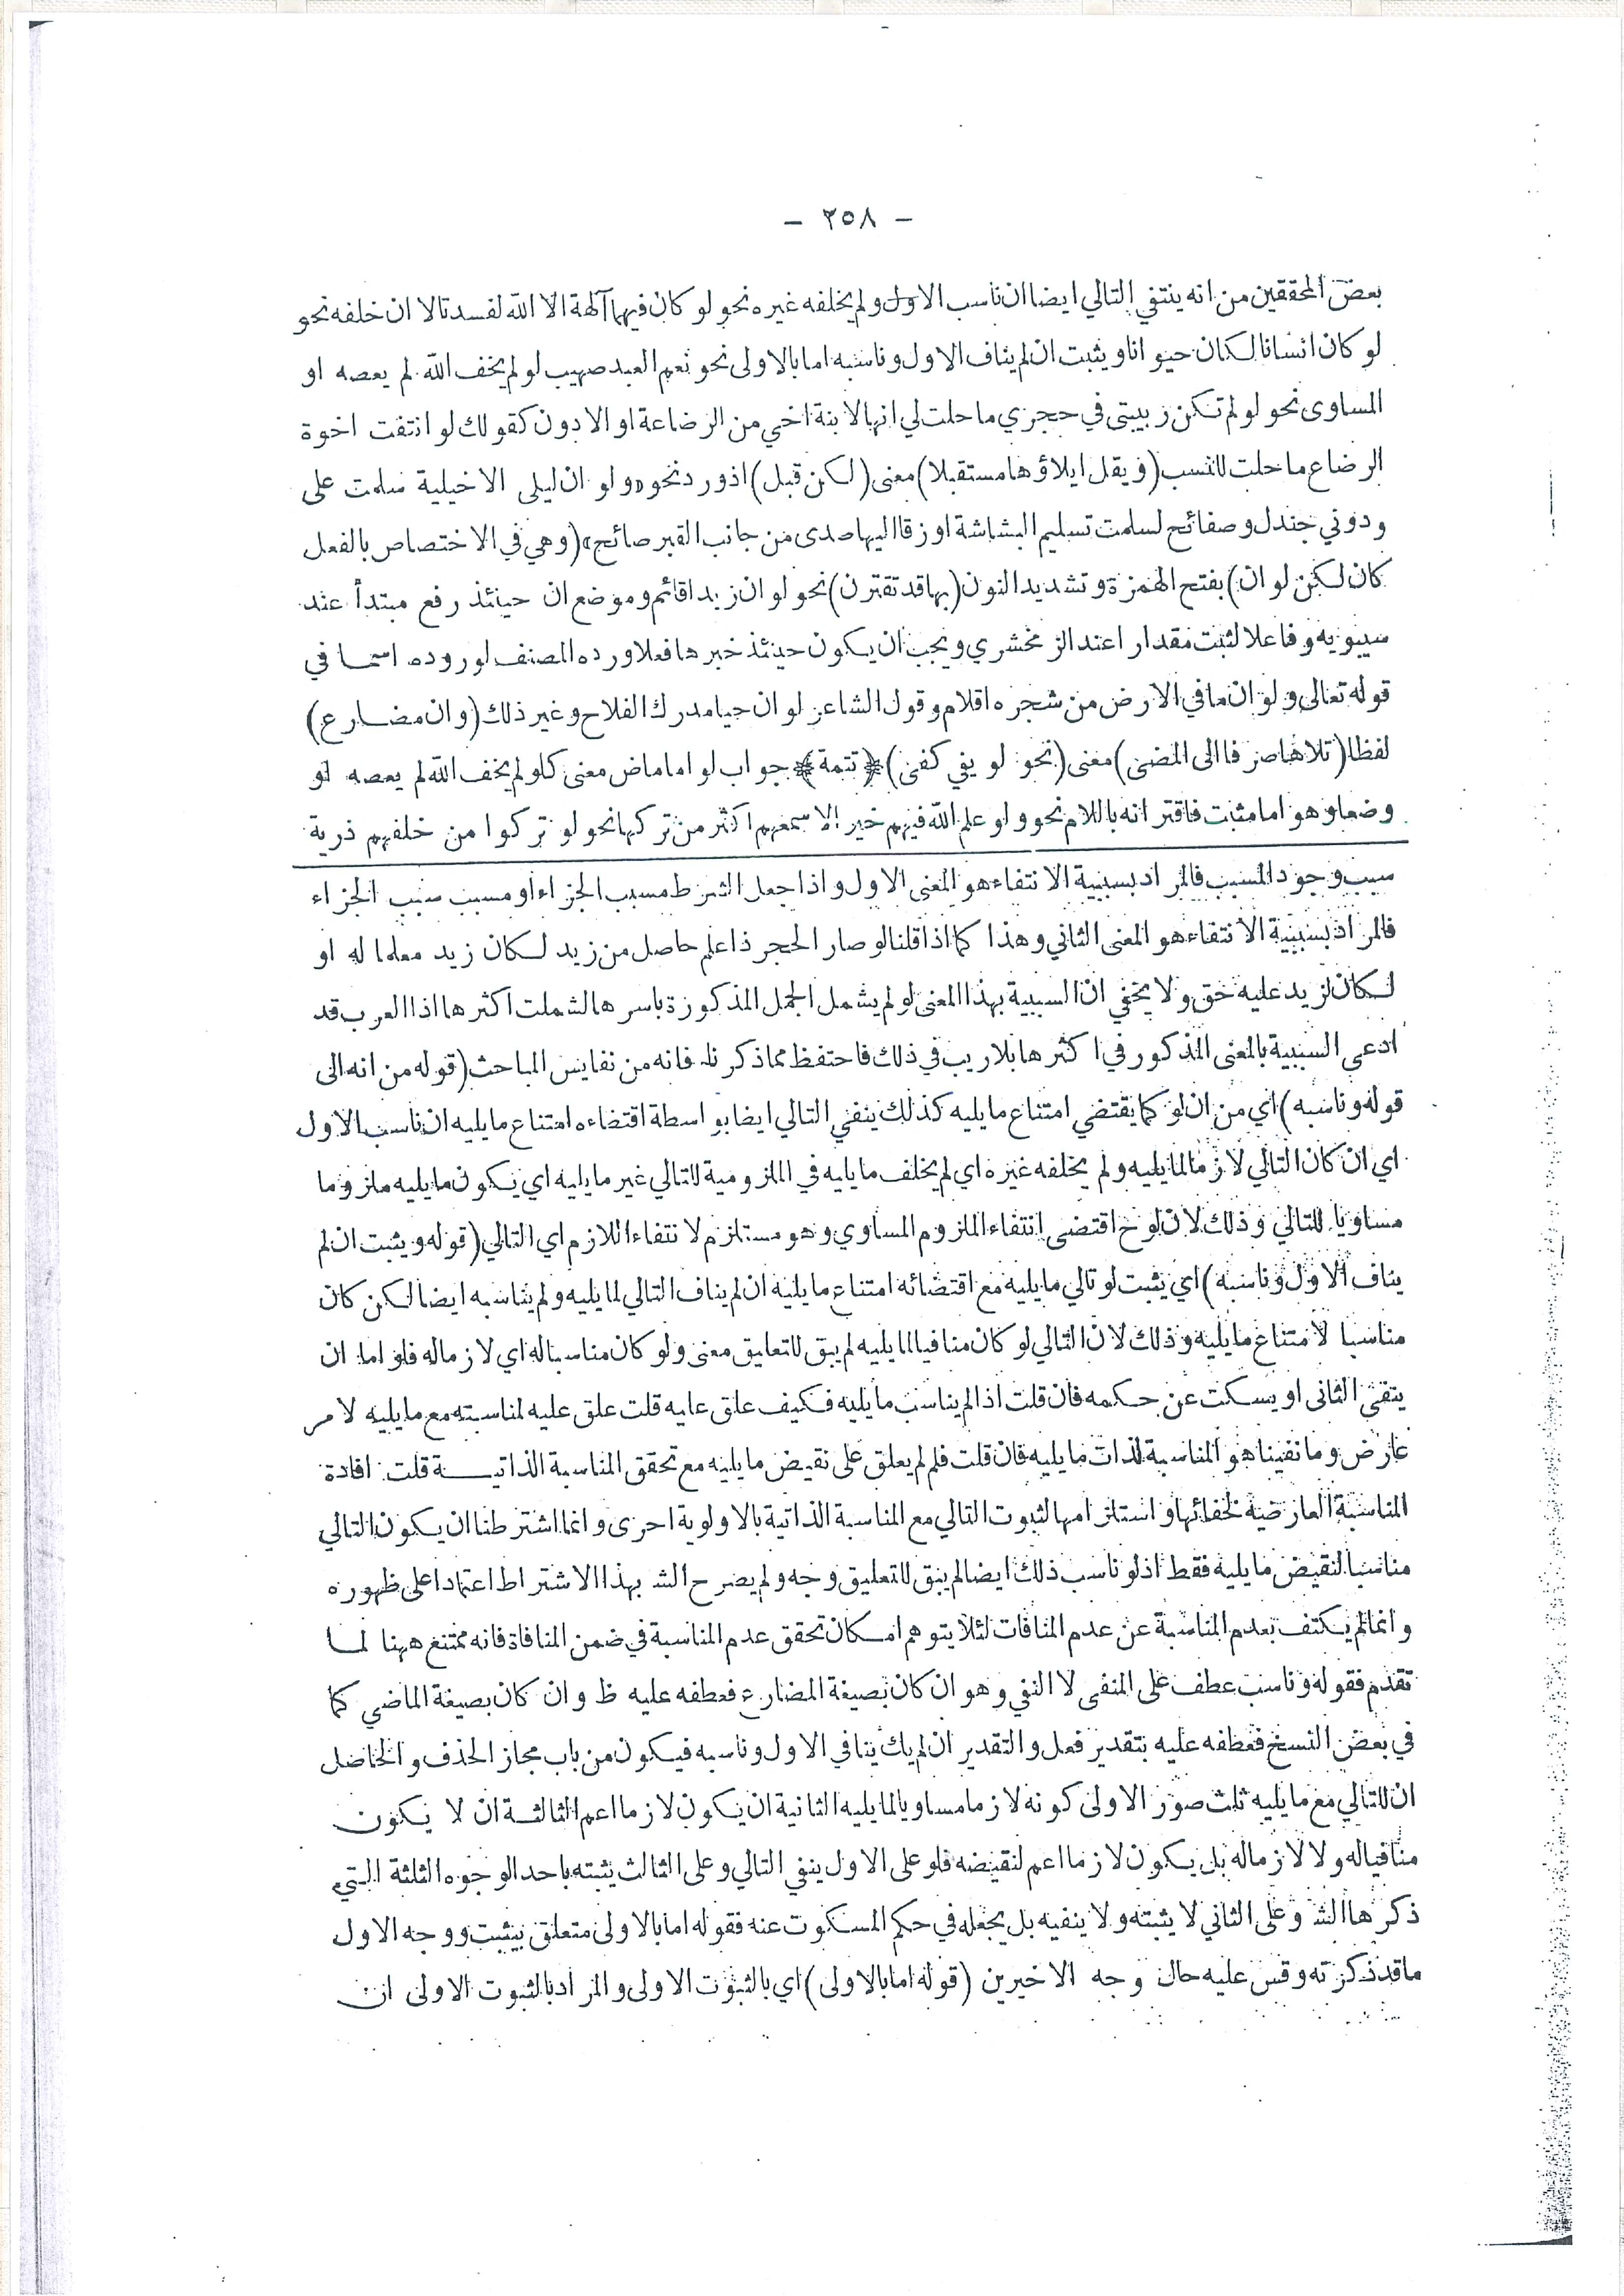 - ٢٥٨ -
بعض المحققين من انه ينتفي التالي ايضا ان ناسب الاول ولم يخلفه غيره نحو لو كان فيهما آلهة الا الله لفسدتا لا ان خلفه نحو
لو كان انسانا لكان حيوانا ويثبت ان لم يناف الاول وناسبه اما بالاولى نحو نعم العبد صهيب لو لم يخف الله لم يعصه او
المساوى نحو لو لم تكن ربيبتى في حجري ما حلت لي انها لابنة اخي من الرضاعة او الادون كقولك لو انتفت اخوة
الرضاع ما حلت للنسب (ويقل ايلاؤها مستقبلا) معنى (لكن قبل) اذ ورد نحو « ولو ان ليلى الاخيلية سلمت على
ودوني جندل وصفائح لسلمت تسليم البشاشة او زقا اليها صدى من جانب القبر صائح » (وهي في الاختصاص بالفعل
كان لكن لو ان) بفتح الهمزة وتشديد النون (بها قد تقترن) نحو لو ان زيدا قائم وموضع ان حينئذ رفع مبتدأ عند
سيبويه وفاعلا لثبت مقدارا عند الزمخشري ويجب ان يكون حينئذ خبرها فعلا ورده المصنف لوروده اسما في
قوله تعالى ولو ان ما في الارض من شجره اقلام وقول الشاعر لو ان حيا مدرك الفلاح وغير ذلك (وان مضارع)
لفظا (تلاها صرفا الى المضى) معنى (نحو لو يفي كفى) ﴿ تتمة ﴾ جواب لو اما ماض معنى كلو لم يخف الله لم يعصه او
وضعا وهو اما مثبت فاقترانه باللام نحو ولو علم الله فيهم خيرا لاسمعهم اكثر من تركها نحو لو تركوا من خلفهم ذرية
سبب وجود المسبب فالمراد بسببية الانتفاء هو المعنى الاول واذا جعل الشرط مسبب الجزاء او مسبب سبب الجزاء
فالمراد بسببية الانتفاء هو المعنى الثاني وهذا كما اذا قلنا لو صار الحجر ذا علم حاصل من زيد لكان زيد معلما له او
لكان لزيد عليه حق ولا يخفي ان السببية بهذا المعنى لو لم يشمل الجمل المذكورة باسرها لشملت اكثرها اذا العرب قد
ادعى السببية بالمعنى المذكور في اكثرها بلا ريب في ذلك فاحتفظ مما ذكرنا فانه من نفايس المباحث (قوله من انه الى
قوله وناسبه) اي من ان لو كما يقتضي امتناع ما يليه كذلك ينفي التالي ايضا بواسطة اقتضاءه امتناع ما يليه ان ناسب الاول
اي ان كان التالي لازما لما يليه ولم يخلفه غيره اي لم يخلف ما يليه في الملزومية للتالي غير ما يليه اي يكون ما يليه ملزوما
مساويا للتالي وذلك لان لو ح اقتضى انتفاء الملزوم المساوي وهو مستلزم لانتفاء اللازم اي التالي (قوله ويثبت ان لم
يناف الاول وناسبه) اي يثبت لو تالي ما يليه مع اقتضائه امتناع ما يليه ان لم يناف التالي لما يليه ولم يناسبه ايضا لكن كان
مناسبا لامتناع ما يليه وذلك لان التالي لو كان منافيا لما يليه لم يبق للتعليق معنى ولو كان مناسبا له اي لازما له فلو اما ان
ينفي الثانى او يسكت عن حكمه فان قلت اذا لم يناسب ما يليه فكيف علق عليه قلت علق عليه لمناسبته مع ما يليه لامر
عارض وما نفيناه هو المناسبة لذات ما يليه فان قلت فلم لم يعلق على نقيض ما يليه مع تحقق المناسبة الذاتية قلت افادة
المناسبة العارضية لخفائها واستلزامها لثبوت التالي مع المناسبة الذاتية بالاولوية احرى وانما اشترطنا ان يكون التالي
مناسبا لنقيض ما يليه فقط اذ لو ناسب ذلك ايضا لم يبق للتعليق وجه ولم يصرح الشـ بهذا الاشتراط اعتمادا على ظهوره
وانما لم يكتف بعدم المناسبة عن عدم المنافات لئلا يتوهم امكان تحقق عدم المناسبة في ضمن المنافاة فانه ممتنع ههنا لما
تقدم فقوله وناسب عطف على المنفى لا النفي وهو ان كان بصيغة المضارع فعطفه عليه ظ وان كان بصيغة الماضي كما
في بعض النسخ فعطفه عليه بتقدير فعل والتقدير ان لم يك ينافي الاول وناسبه فيكون من باب مجاز الحذف والحاصل
ان للتالي مع ما يليه ثلث صور الاولى كونه لازما مساويا لما يليه الثانية ان يكون لازما اعم الثالثة ان لا يكون
منافيا له ولا لازما له بل يكون لازما اعم لنقيضه فلو على الاول ينفي التالي وعلى الثالث يثبته باحد الوجوه الثلثة التي
ذكرها الشـ وعلى الثاني لا يثبته ولا ينفيه بل يجعله في حكم المسكوت عنه فقوله اما بالاولى متعلق بيثبت ووجه الاول
ما قد ذكرته وقس عليه حال وجه الاخيرين (قوله اما بالاولى) اي بالثبوت الاولى والمراد بالثبوت الاولى ان